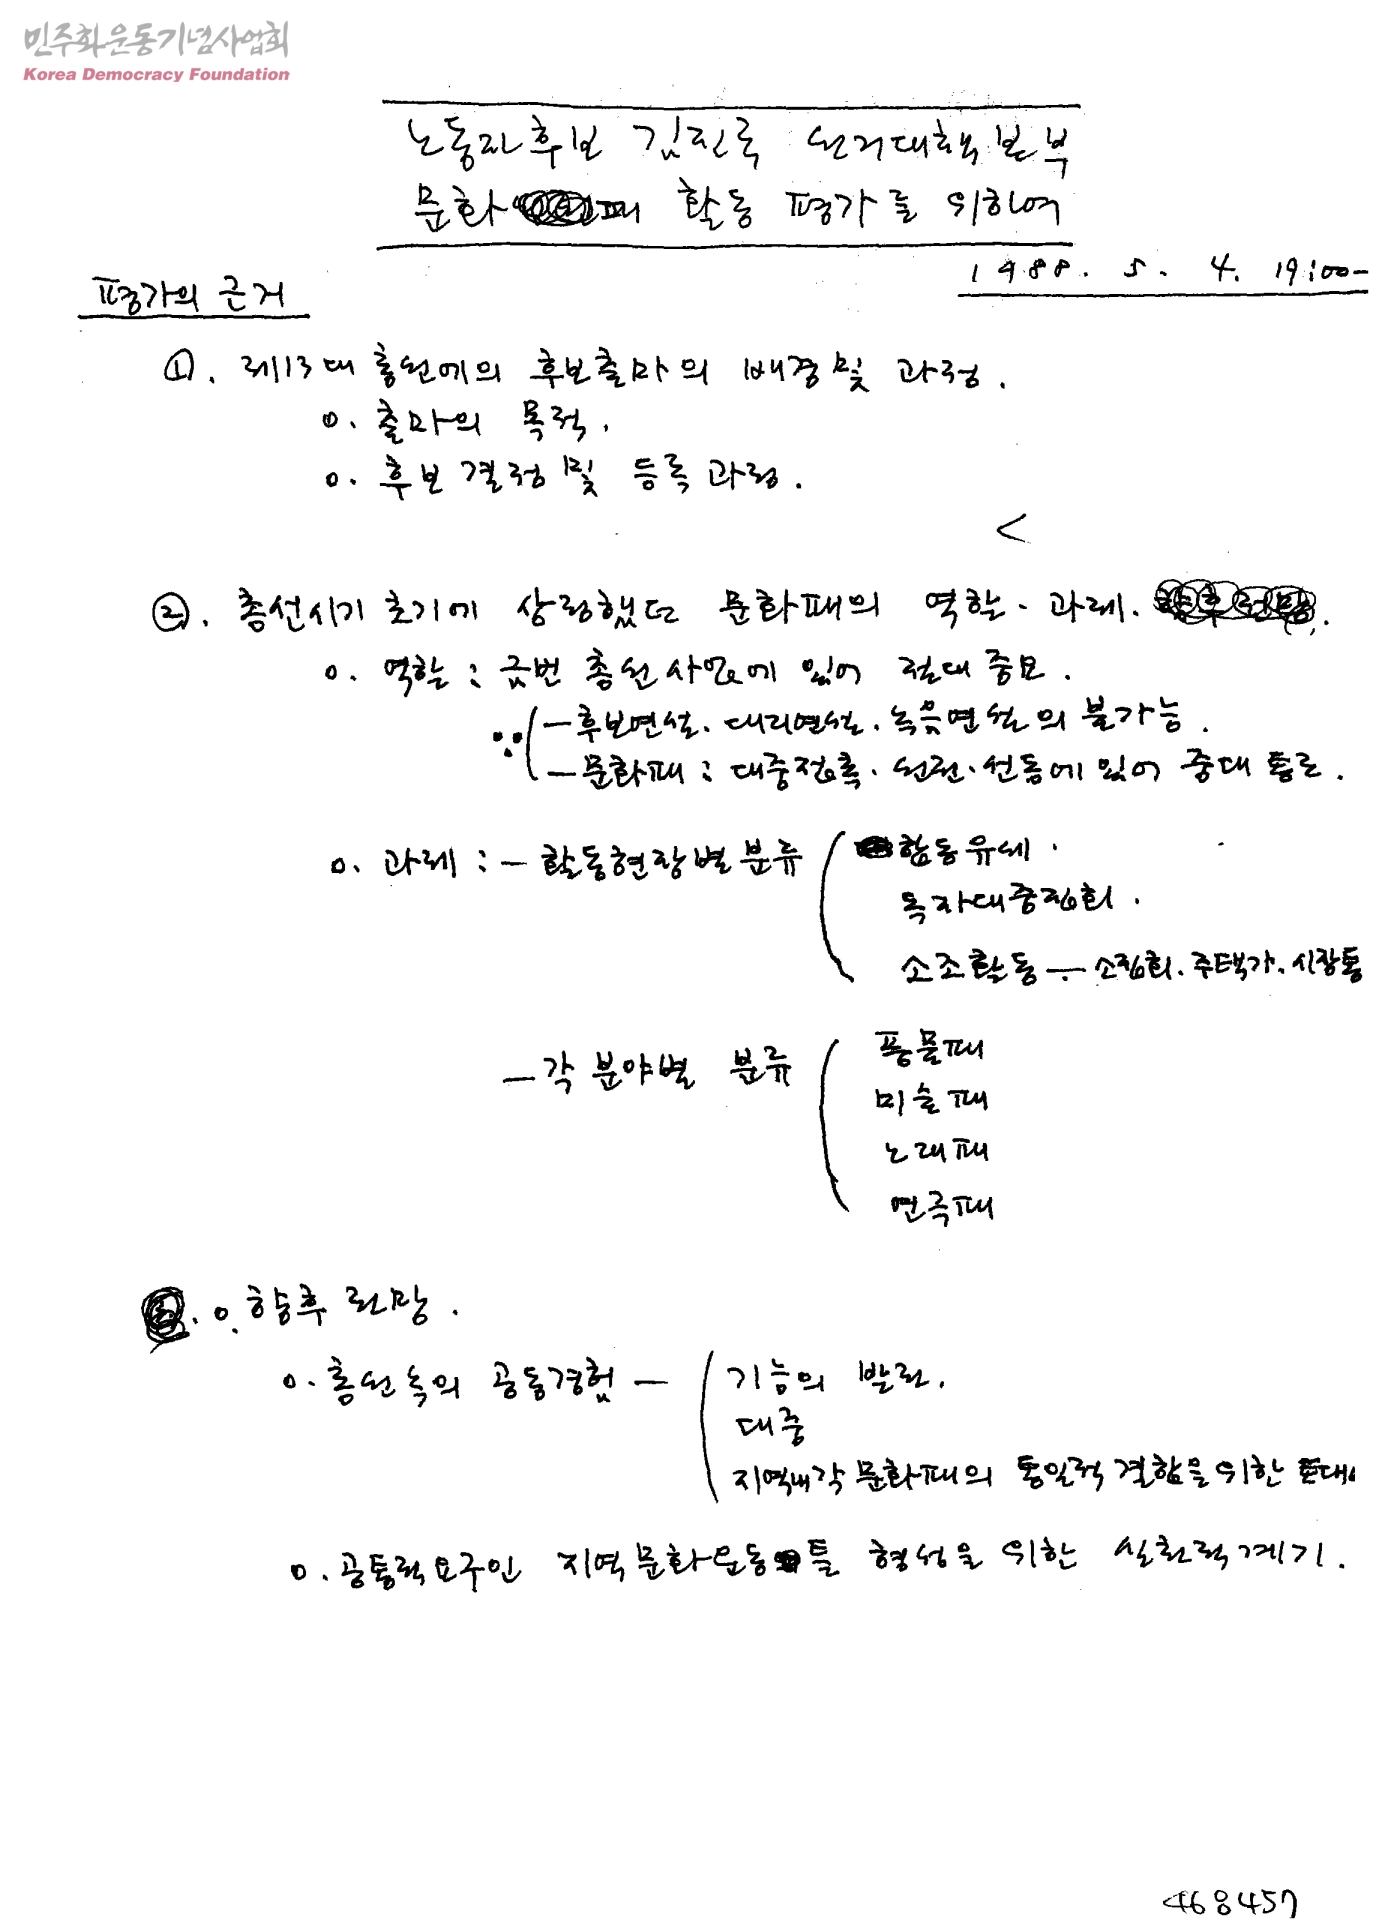 민주화운동기념사업회
Korea Democracy Foundation
노동자후보 김진록 선거대책본부
문화패 활동 평가를 위하여
1988. 5. 4. 19:00-
평가의 근거
①. 제13대 총선에의 후보출마의 배경및 과정.
o. 출마의 목적.
o. 후보결정및 등록과정.
<
②. 총선시기 초기에 상정했던 문화패의 역할·과제.
o. 역할 : 금번 총선 사업에 있어 절대중요.
∵ ( - 후보연설. 대리연설. 녹음연설의 불가능.
- 문화패 : 대중접촉. 선전·선동에 있어 중대 통로.
o. 과제 : - 활동현장별 분류 ( 합동유세.
독자대중집회.
소조활동 - 소집회. 주택가. 시장통
- 각 분야별 분류 ( 풍물패
미술패
노래패
연극패
o. 향후 전망.
o. 총선속의 공동경험 - ( 기능의 발전.
대중
지역내 각 문화패의 통일적 결합을 위한 토대.
o. 공통적요구인 지역문화운동틀 형성을 위한 실천적계기.
468457